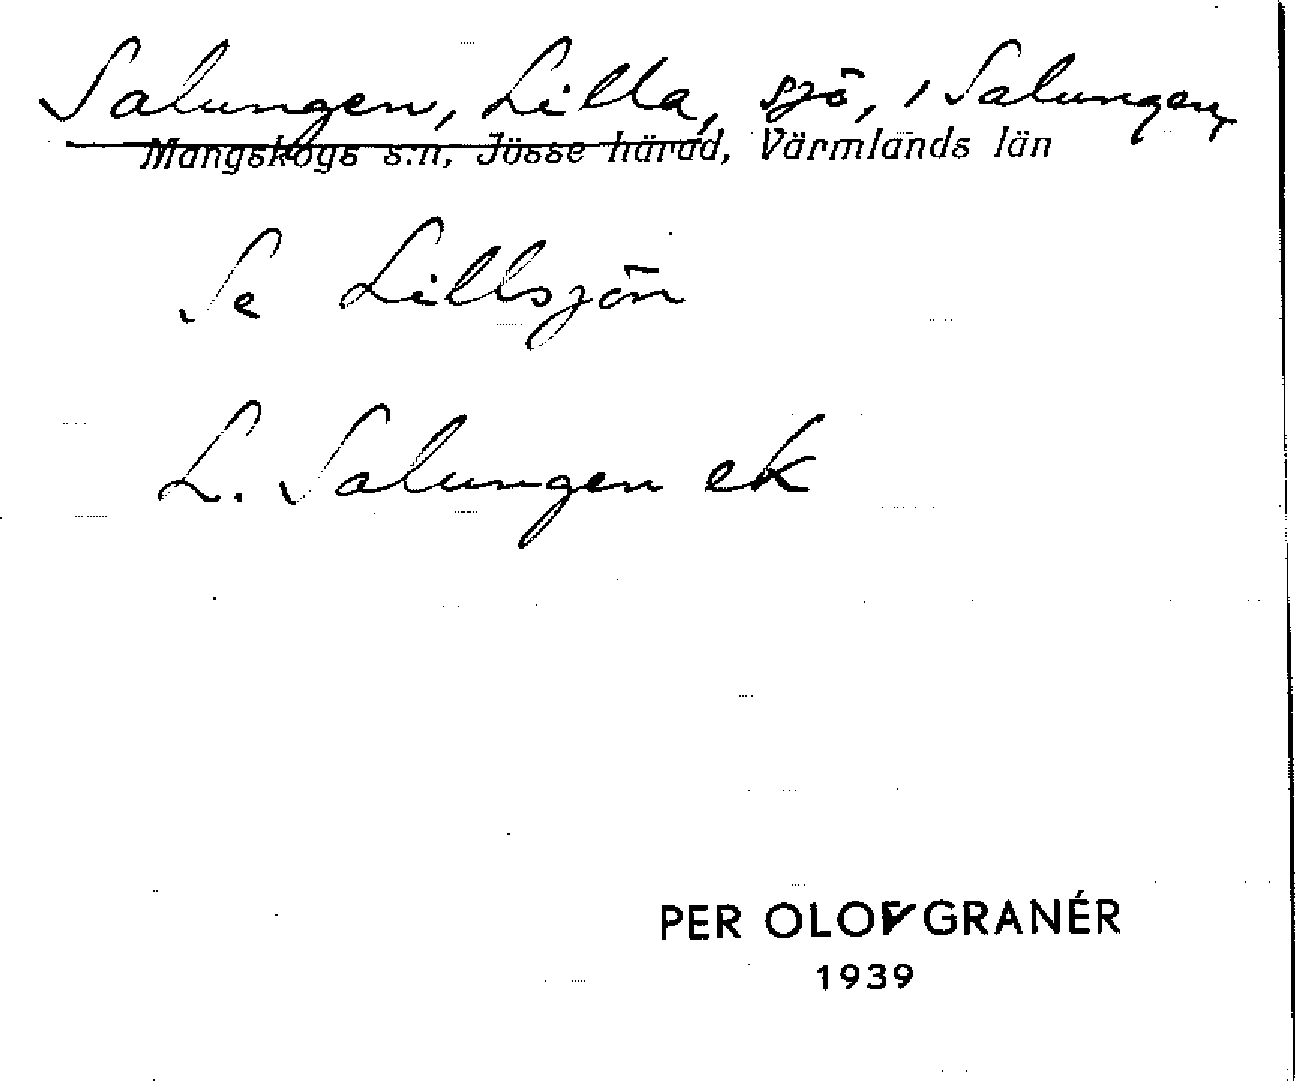 Salungen, Lilla, sjö, i Salungen,
Mangskogs s:n, Jösse härad, Värmlands län
Se Lillsjön
L. Salungen ek
PER OLOF GRANÉR
1939